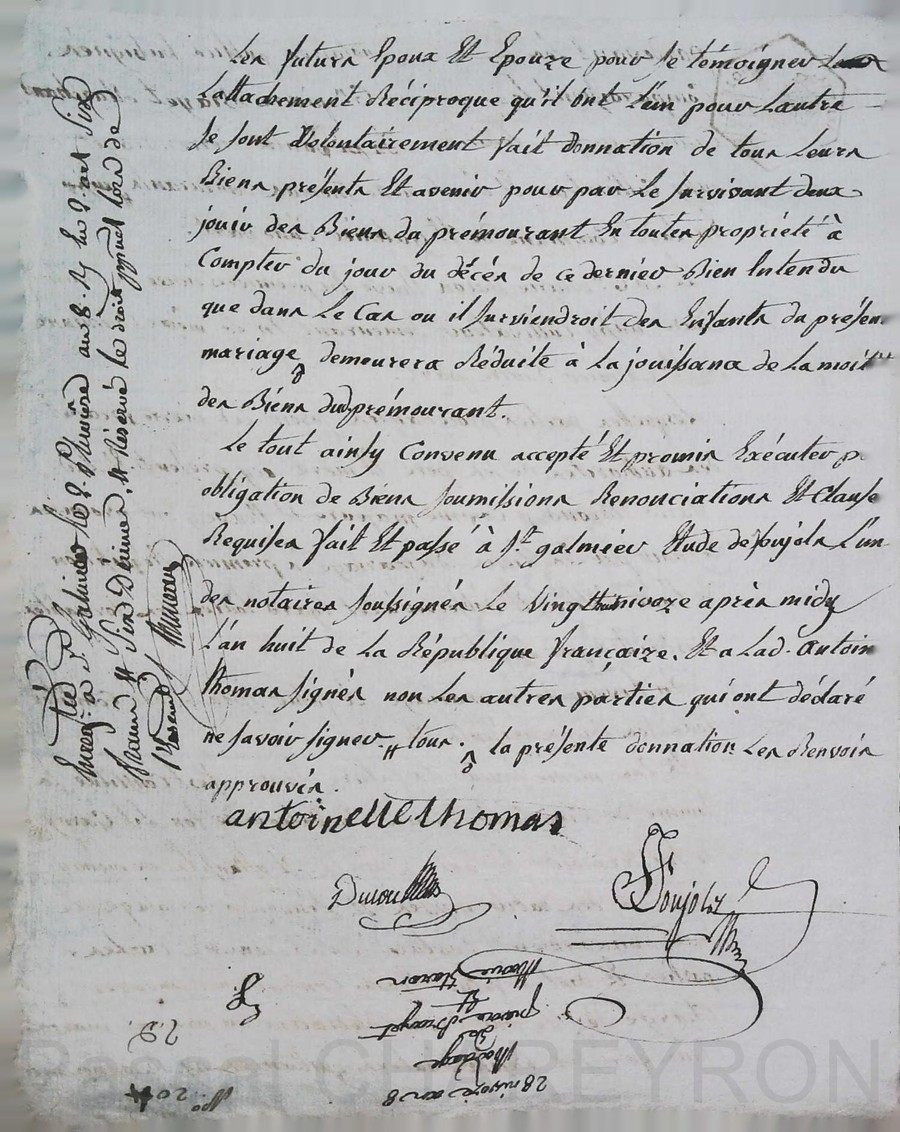 Les futurs Epoux Et Epouze pour se témoigner
Lattachement Réciproque qu'il ont L'un pour Lautre
Se sont Volontairement fait donnation de tous Leurs
Biens présents Et avenir pour par Le survivant deux
jouir des Biens du prémourant En toutes propriété à
Compter du jour du décès de ce dernier Bien Intendu
que dans Le Cas ou il surviendroit des Enfants du présen
mariage demourera Réduite à La jouissance de La moitié
des Biens dud prémourant.
Le tout ainsy Convenu accepté Et promis Exécuter p
obligation de Biens soumissions Renonciations Et Clause
Requises fait Et passé à St galmier Etude de Poujols L'un
des notaires soussignés Le Vingt huit nivoze après midy
L'an huit de La République françaize. Et a Lad. Antoin
thomas signés non Les autres parties qui ont déclaré
ne savoir signer tous. la présente donnation Les Renvois
approuvés.
antoinette thomas
Poujolz
Enreg. à St Galmier le 2 Pluviôse an 8
reçu Six Décimes, et Réservé le droit lors de
28 nivoze an 8
Mariage
de
Brayet
Et
Marie
No 20